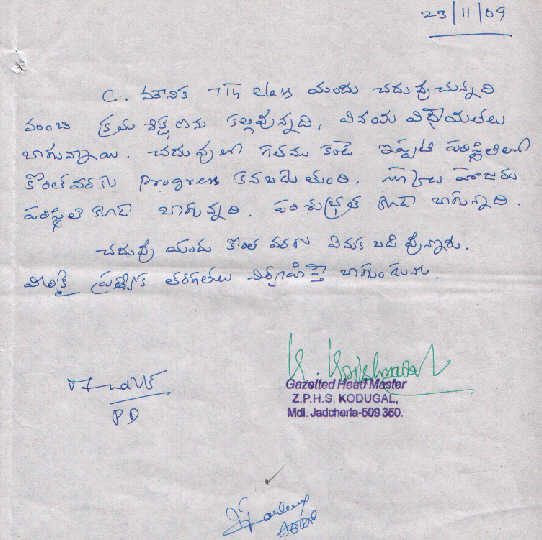 23/11/09
C. మౌనిక 7th class యందు చదువుచున్నది
మంచి క్రమ శిక్షణను కల్గివున్నది, వినయ విధేయతలు
బాగున్నాయి. చదువులో గతము కంటే ఇప్పటి పరిస్థితిలో
కొంతవరకు progress కనబడుతుంది. స్కూలు హాజరు
పరిస్థితి కూడా బాగున్నది. పరిశుభ్రత కూడా బాగున్నది.
చదువు యందు కొంత వరకు వెనుకబడి వున్నారు.
వీరికి ప్రత్యేక తరగతులు నిర్వహిస్తే బాగుండును
Gazetted Head Master
Z.P.H.S. KODUGAL,
Mdl. Jadcherla-509 360.
PD